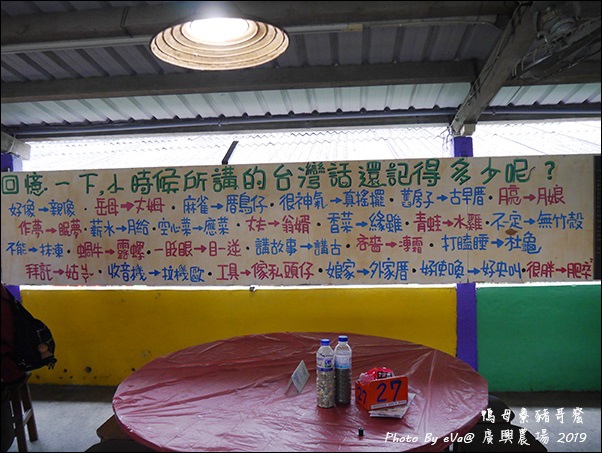 回憶一下,小時候所講的台灣話還記得多少呢?
好像→親像‧岳母→大姆‧麻雀→厝鳥仔‧很神氣→真搖擺‧舊房子→古早厝‧月亮→月娘
作夢→眠夢‧薪水→月給‧空心菜→應菜‧丈夫→翁婿‧香菜→緣雖‧青蛙→水雞‧不定→無竹殼
不能→抹車‧蝸牛→露螺‧一眨眼→目一逆‧講故事→講古‧杏露‧打瞌睡→杜龜
拜託→姑‧收音機→拉機歐‧工具→傢私頭仔‧娘家→外家厝‧好使喚→好央叫‧很胖→肥
27
鴇母桑豬哥麿
Photo By eVa@ 廣興農場 2019